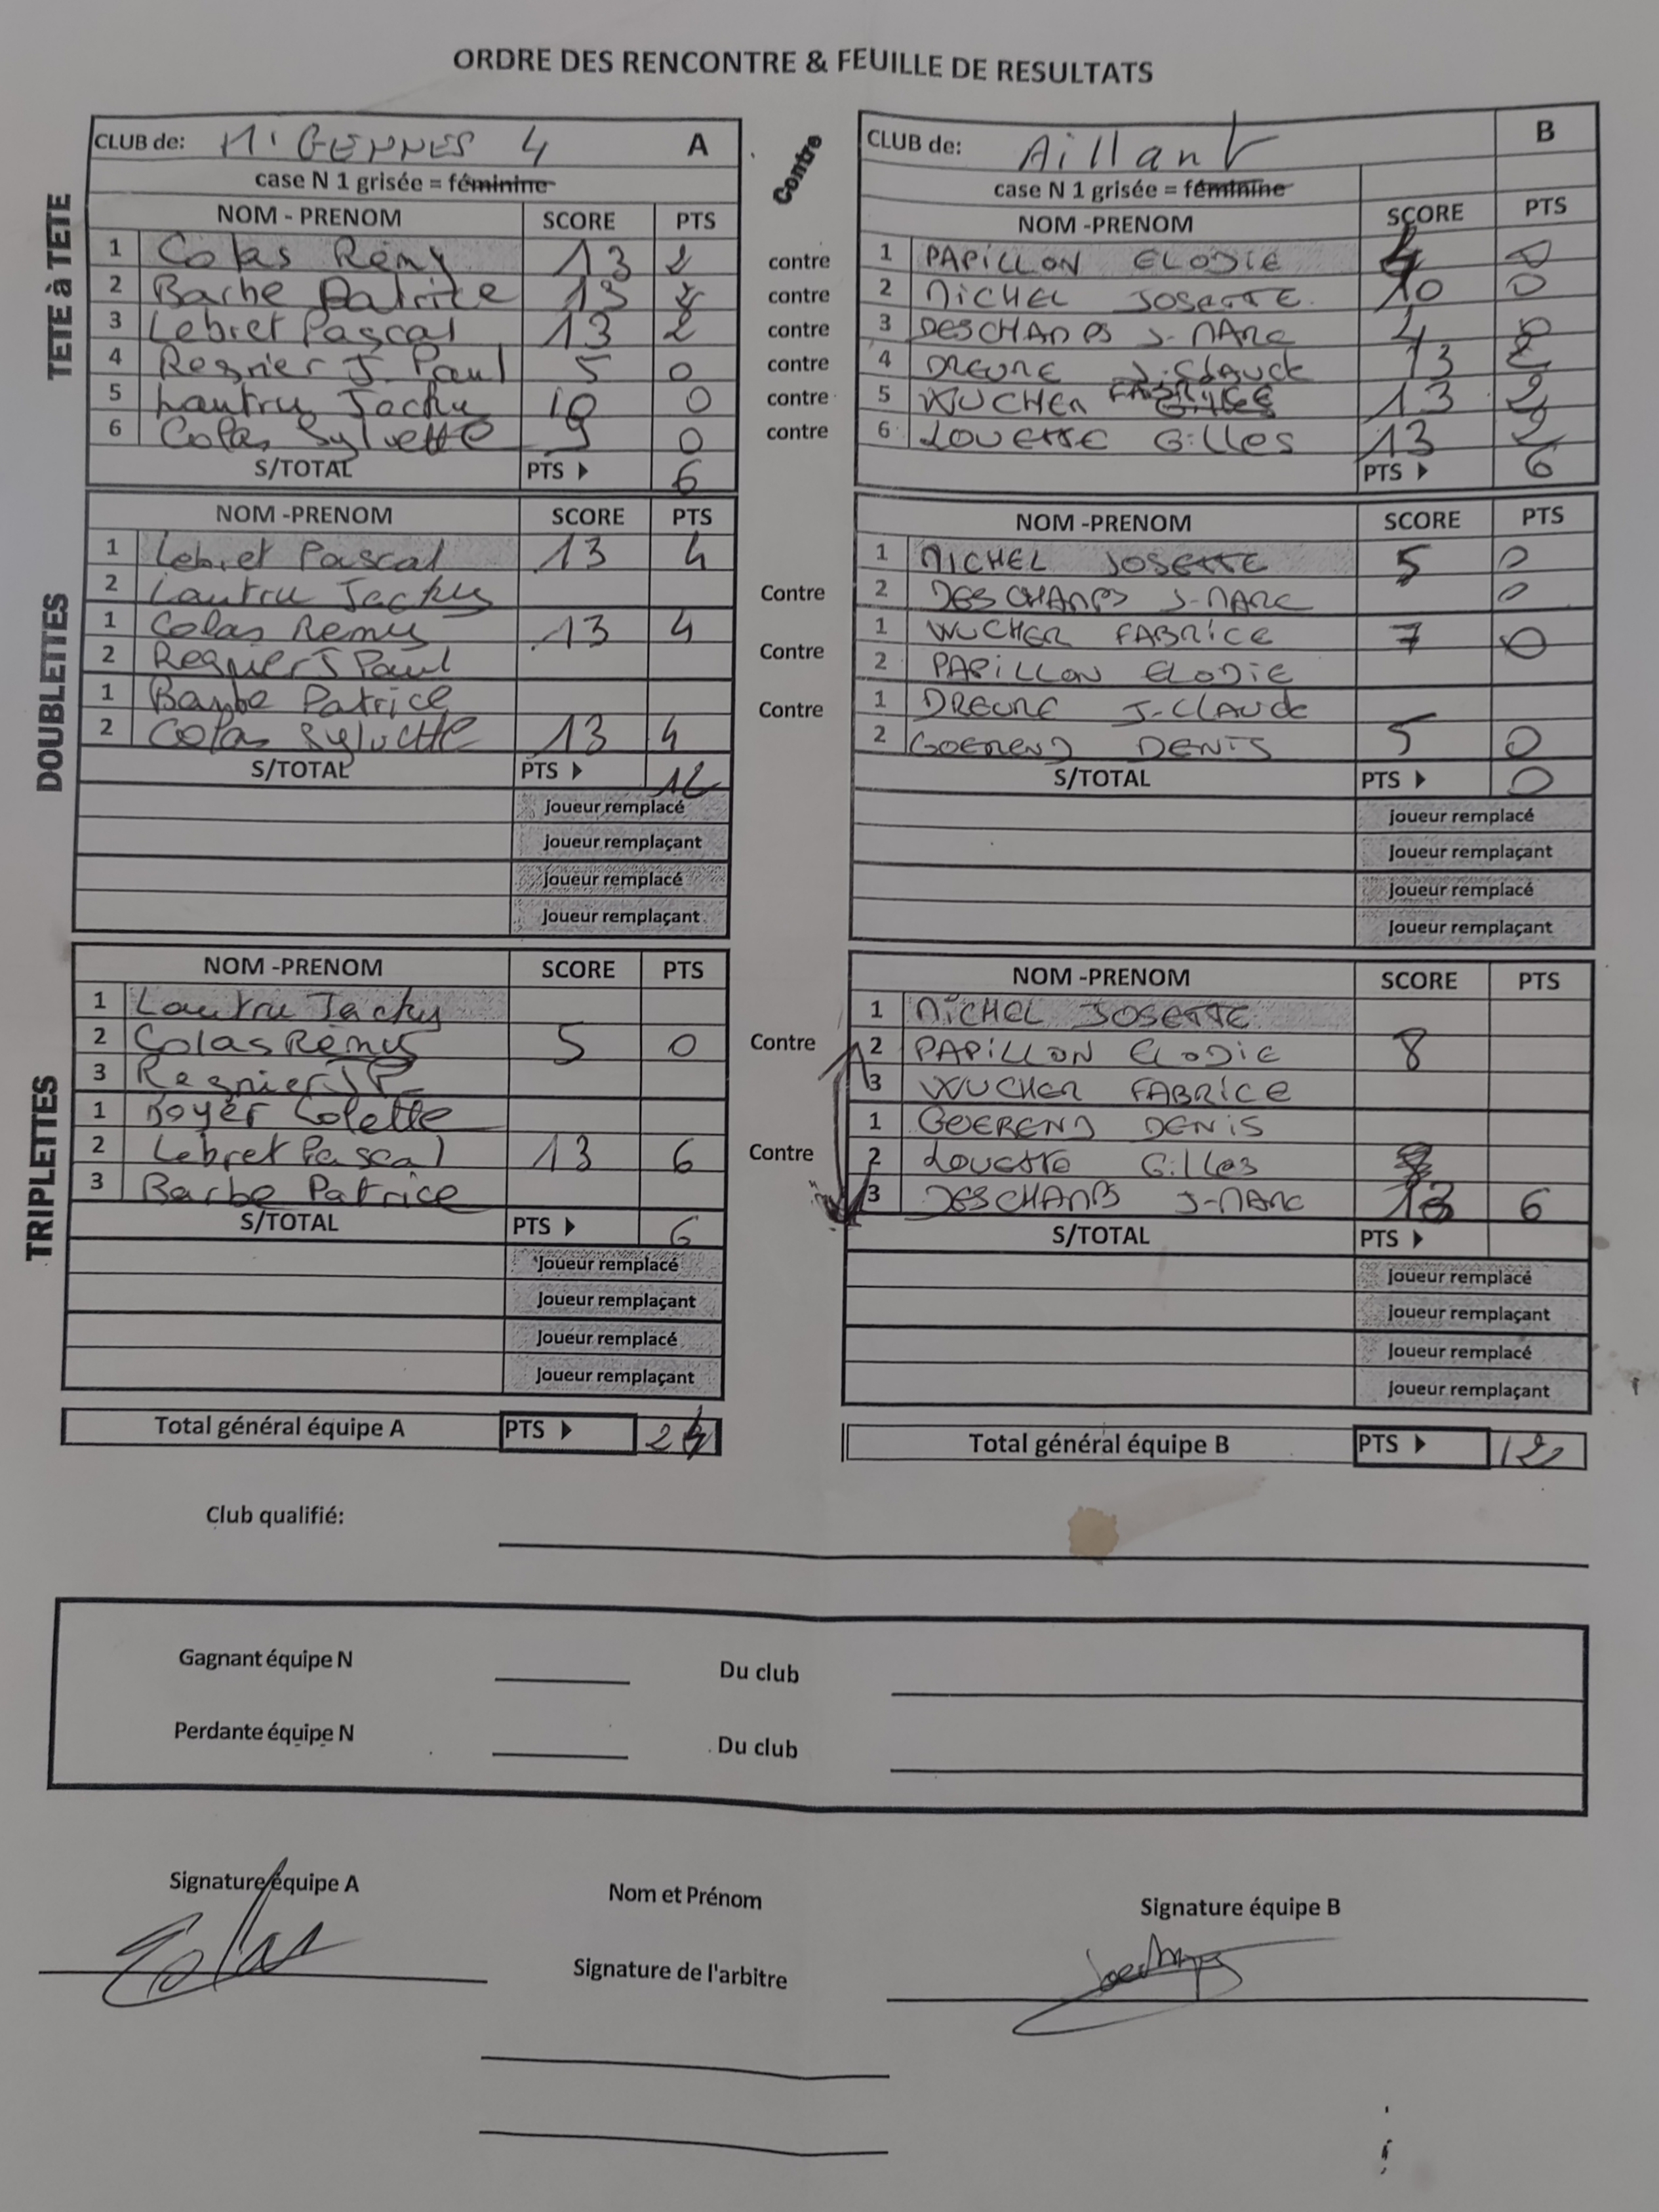 ORDRE DES RENCONTRE & FEUILLE DE RESULTATS
CLUB de: MIGENNES 4 A Contre CLUB de: Aillant B
case N 1 grisée = féminine case N 1 grisée = féminine
TETE à TETE
NOM - PRENOM SCORE PTS NOM -PRENOM SCORE PTS
1 Colas Rémy 13 2 contre 1 PAPILLON ELODIE 4 0
2 Barbe Patrice 13 2 contre 2 MICHEL JOSETTE 10 0
3 Lebret Pascal 13 2 contre 3 DESCHAMPS J-MARC 4 0
4 Regnier J Paul 5 0 contre 4 DREUNE J.Claude 13 2
5 Lautru Jacky 10 0 contre 5 WUCHER FABRICE 13 2
6 Colas Sylvette 9 0 contre 6 LOUETTE Gilles 13 2
S/TOTAL PTS 6 PTS 6
DOUBLETTES
NOM -PRENOM SCORE PTS NOM -PRENOM SCORE PTS
1 Lebret Pascal 13 4 1 MICHEL JOSETTE 5 0
2 Lautru Jacky Contre 2 DESCHAMPS J-MARC 0
1 Colas Remy 13 4 1 WUCHER FABRICE 7 0
2 Regnier J Paul Contre 2 PAPILLON ELODIE
1 Barbe Patrice Contre 1 DREUNE J-CLAUDE
2 Colas Sylvette 13 4 2 GOEREND DENIS 5 0
S/TOTAL PTS 12 S/TOTAL PTS 0
Joueur remplacé Joueur remplacé
Joueur remplaçant Joueur remplaçant
Joueur remplacé Joueur remplacé
Joueur remplaçant Joueur remplaçant
TRIPLETTES
NOM -PRENOM SCORE PTS NOM -PRENOM SCORE PTS
1 Lautru Jacky 1 MICHEL JOSETTE
2 Colas Rémy 5 0 Contre 2 PAPILLON ELODIE 8
3 Regnier J P 3 WUCHER FABRICE
1 Boyer Colette 1 GOEREND DENIS
2 Lebret Pascal 13 6 Contre 2 LOUETTE Gilles
3 Barbe Patrice 3 DESCHAMPS J-MARC 13 6
S/TOTAL PTS 6 S/TOTAL PTS
Joueur remplacé Joueur remplacé
Joueur remplaçant Joueur remplaçant
Joueur remplacé Joueur remplacé
Joueur remplaçant Joueur remplaçant
Total général équipe A PTS 24 Total général équipe B PTS 12
Club qualifié:
Gagnant équipe N Du club
Perdante équipe N Du club
Signature équipe A Nom et Prénom Signature équipe B
Colas
Signature de l'arbitre